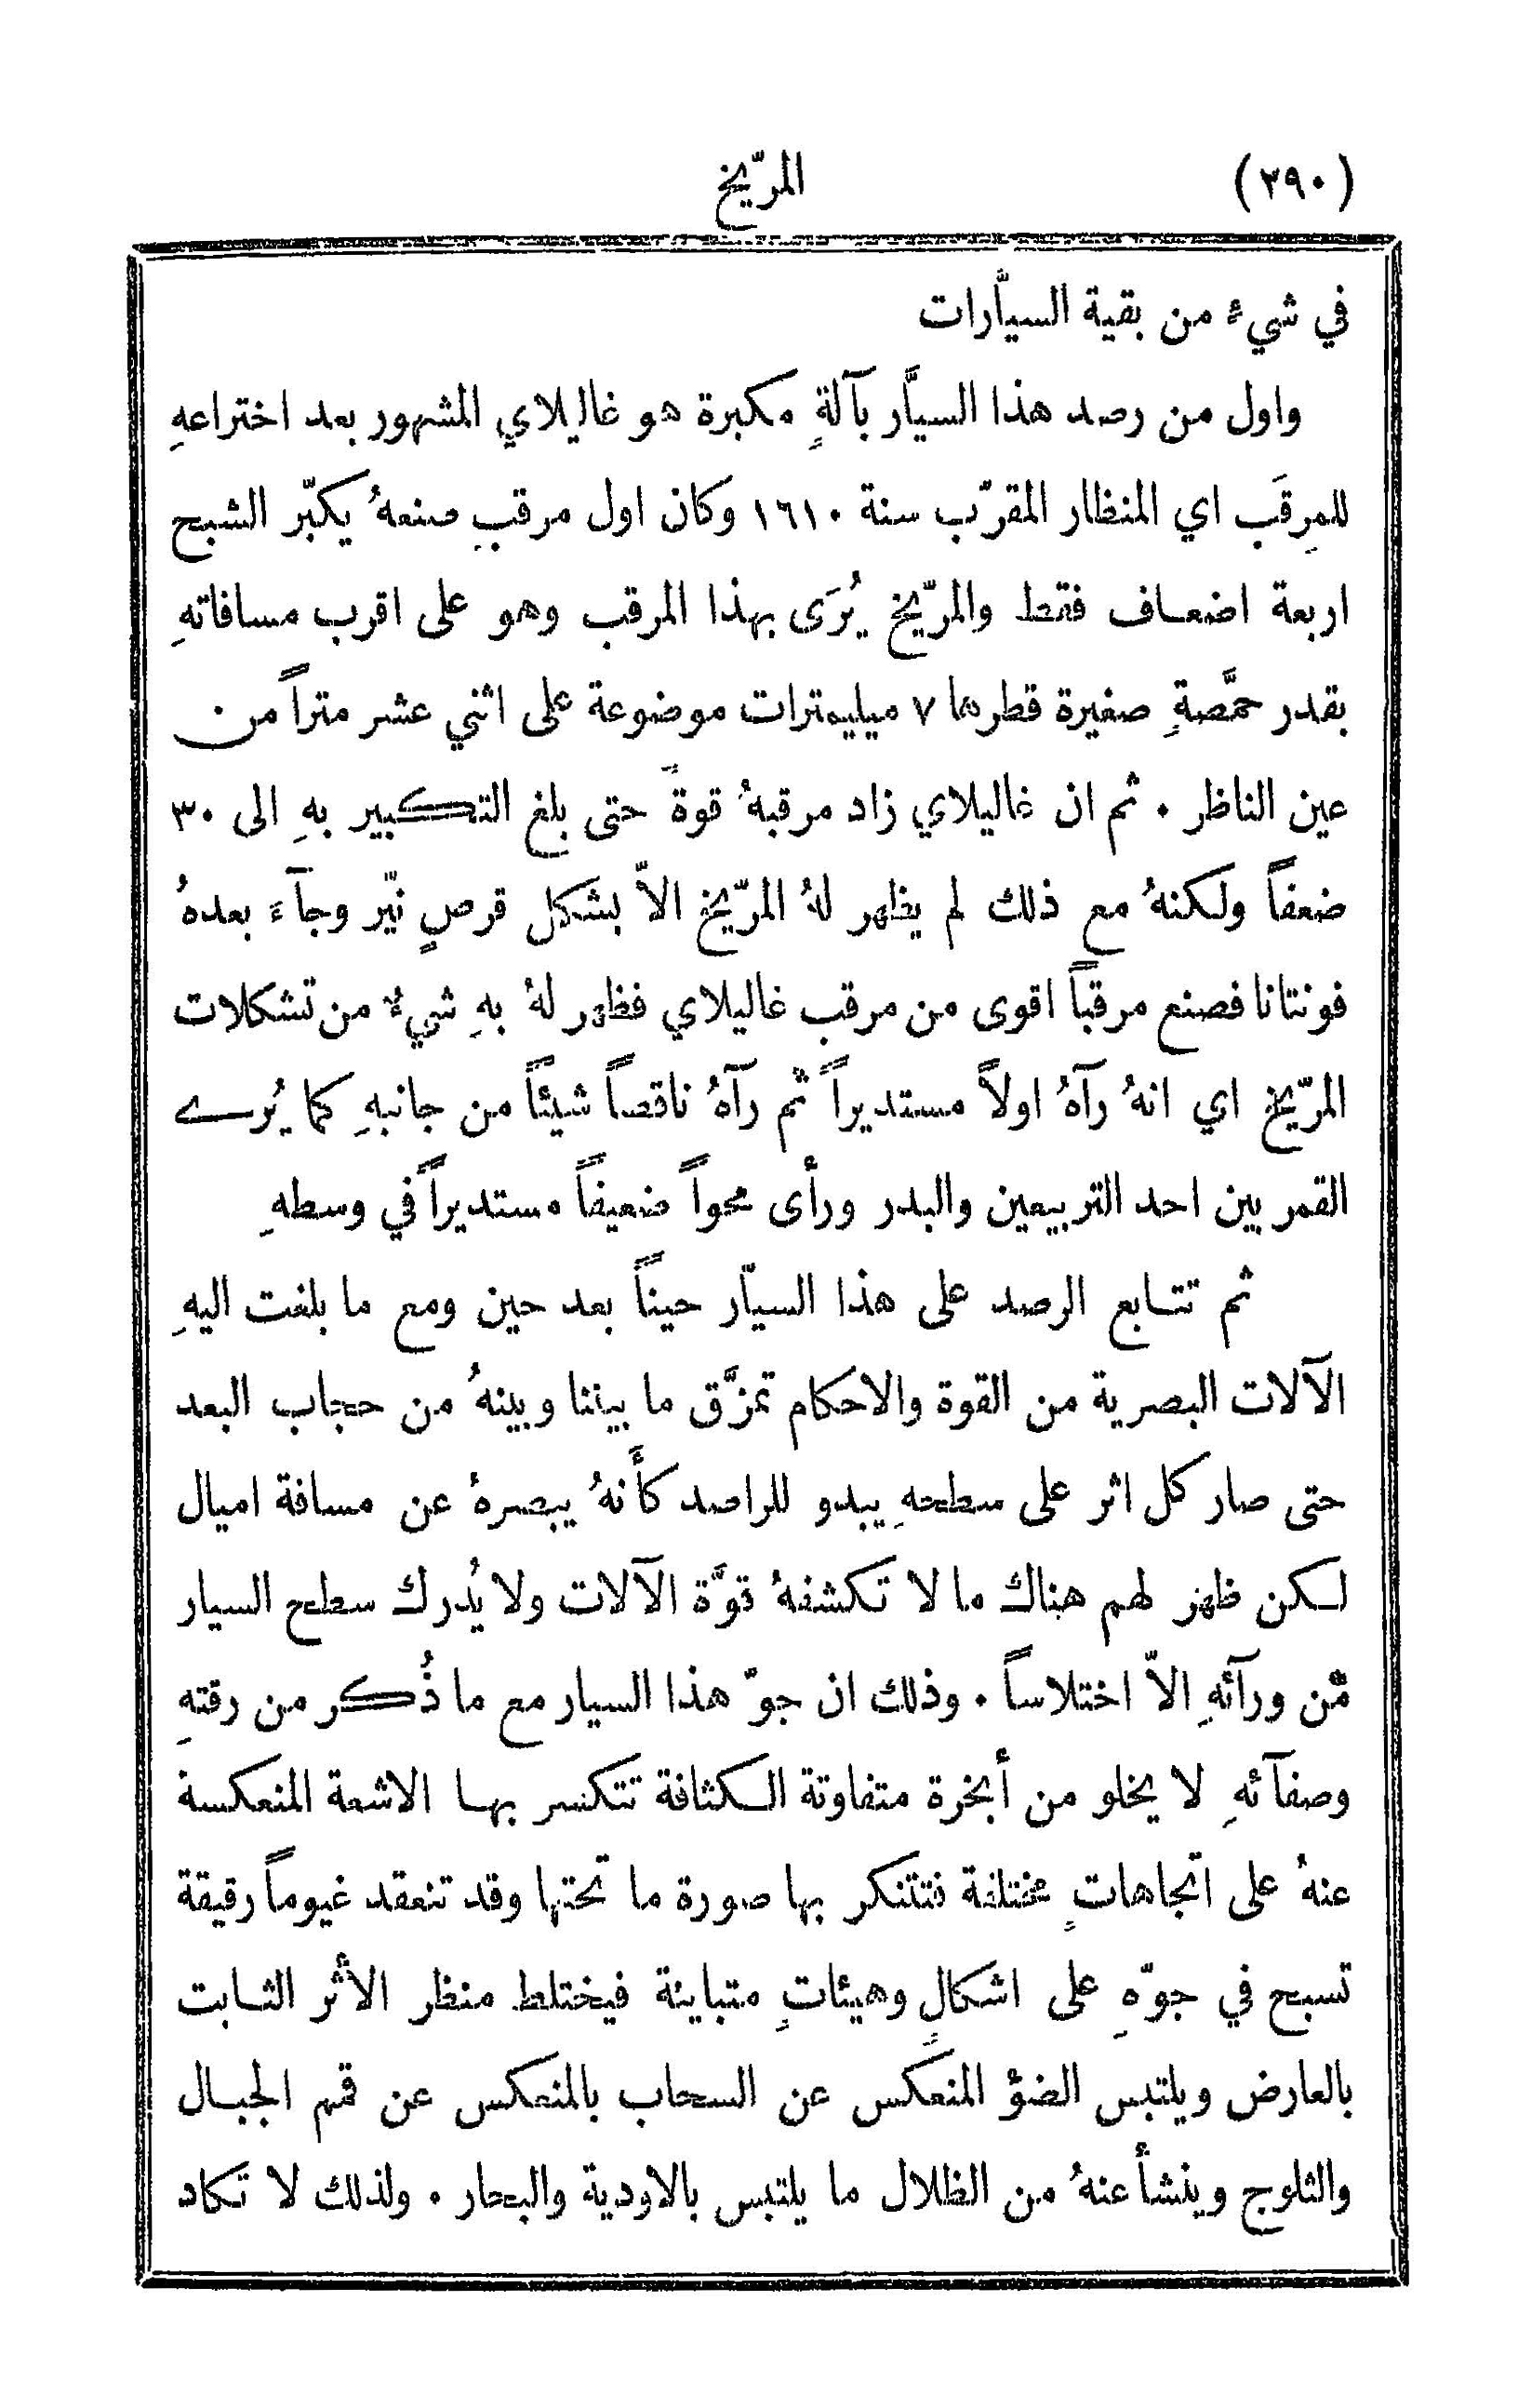 (٢٩٠) المرّيخ
في شيءٍ من بقية السيَّارات
واول من رصد هذا السيَّار بآلةٍ مكبرة هو غاليلاي المشهور بعد اختراعهِ
للمِرقَب اي المنظار المقرّب سنة ١٦١٠ وكان اول مرقبٍ صنعهُ يكبّر الشبح
اربعة اضعاف فقط والمرّيخ يُرَى بهذا المرقب وهو على اقرب مسافاتهِ
بقدر حمَّصةٍ صغيرة قطرها ٧ ميليمترات موضوعة على اثني عشر متراً من
عين الناظر . ثم ان غاليلاي زاد مرقبهُ قوةً حتى بلغ التكبير بهِ الى ٣٠
ضعفاً ولكنهُ مع ذلك لم يظهر لهُ المرّيخ الاّ بشكل قرصٍ نيّر وجآءَ بعدهُ
فونتانا فصنع مرقباً اقوى من مرقب غاليلاي فظهر لهُ بهِ شيءٌ من تشكلات
المرّيخ اي انهُ رآهُ اولاً مستديراً ثم رآهُ ناقصاً شيئاً من جانبهِ كما يُرى
القمر بين احد التربيعين والبدر ورأى محواً ضعيفاً مستديراً في وسطهِ
ثم تتابع الرصد على هذا السيّار حيناً بعد حين ومع ما بلغت اليهِ
الآلات البصرية من القوة والاحكام تمزَّق ما بيننا وبينهُ من حجاب البعد
حتى صار كل اثر على سطحهِ يبدو للراصد كأَنهُ يبصرهُ عن مسافة اميال
لكن ظهر لهم هناك ما لا تكشفهُ قوَّة الآلات ولا يُدرك سطح السيار
مِّن ورآئهِ الاّ اختلاساً . وذلك ان جوّ هذا السيار مع ما ذُكر من رقتهِ
وصفآئهِ لا يخلو من أبخرة متفاوتة الكثافة تتكسر بها الاشعة المنعكسة
عنهُ على اتّجاهاتٍ مختلفة فتتنكر بها صورة ما تحتها وقد تنعقد غيوماً رقيقة
تسبح في جوّهِ على اشكالٍ وهيئاتٍ متباينة فيختلط منظر الأثر الثابت
بالعارض ويلتبس الضؤ المنعكس عن السحاب بالمنعكس عن قمم الجبال
والثلوج وينشأ عنهُ من الظلال ما يلتبس بالاودية والبحار . ولذلك لا تكاد